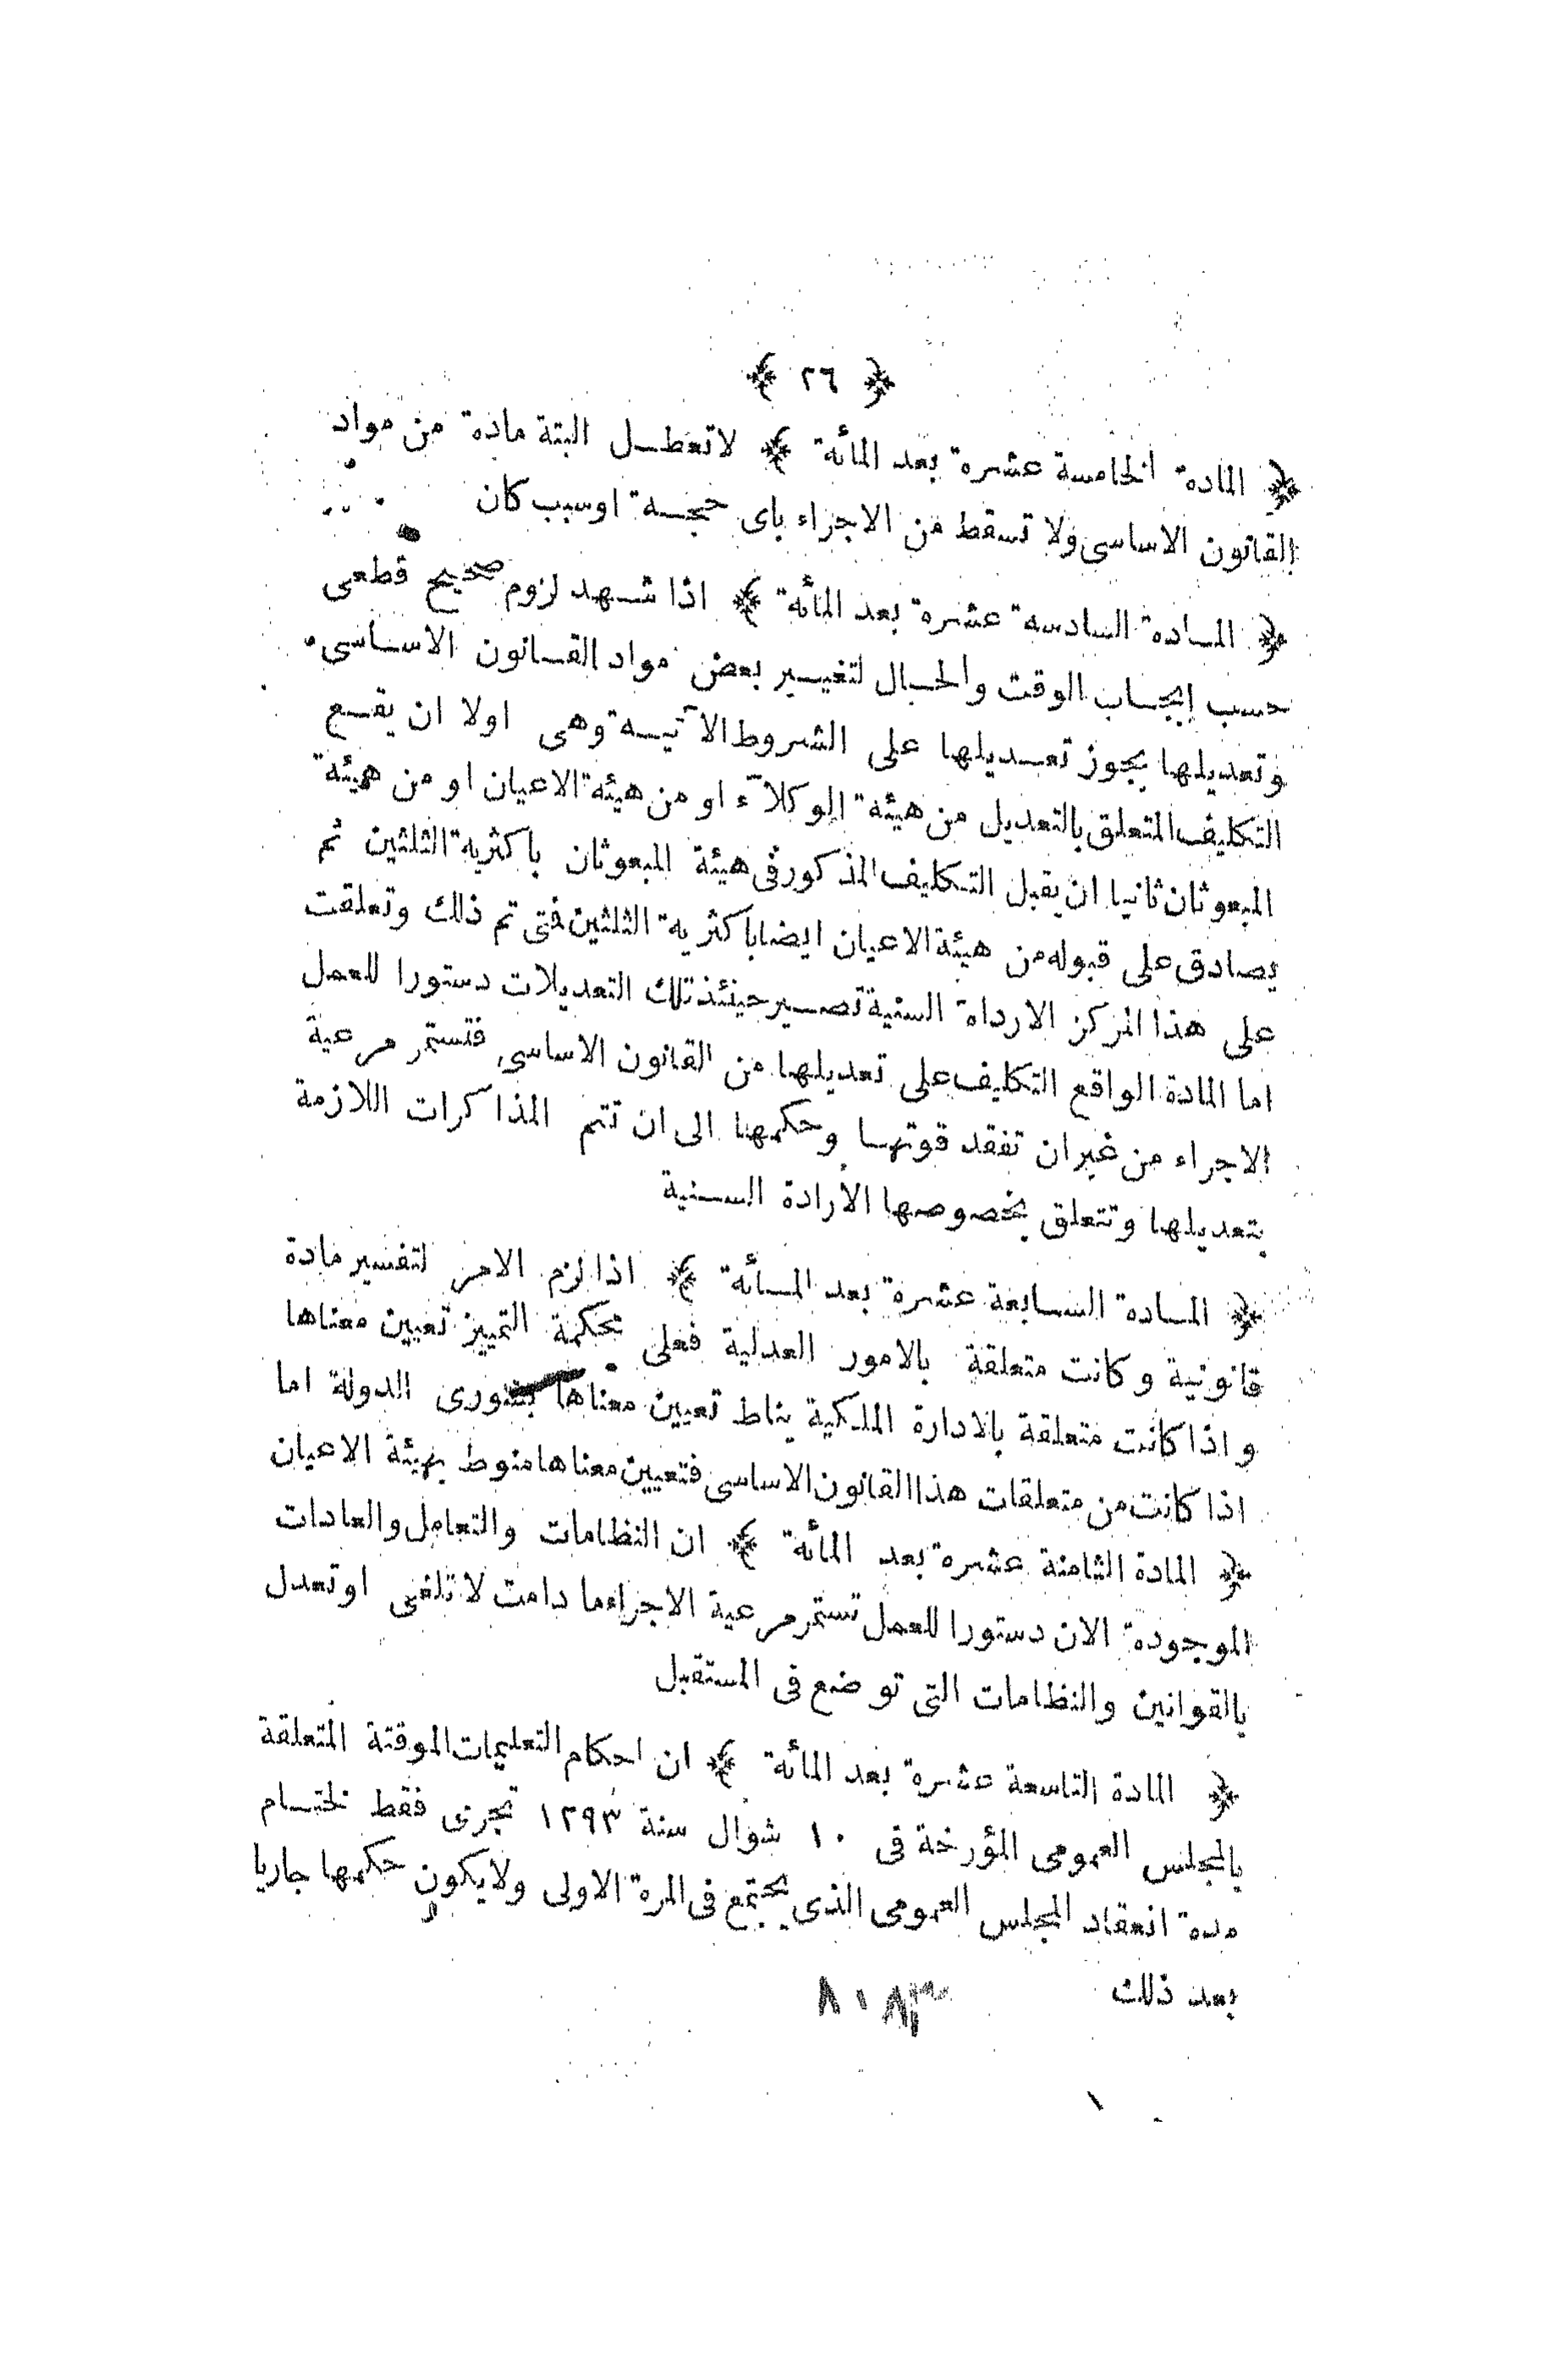 ﴿ ٢٦ ﴾
﴿ المادة الخامسة عشرة بعد المأة ﴾ لاتعطل البتة مادة من مواد
القانون الاساسى ولا تسقط من الاجراء باى حجة اوسبب كان
﴿ المادة السادسة عشرة بعد المأة ﴾ اذا شهد لزوم صحيح قطعى
حسب إيجاب الوقت والحال لتغيير بعض مواد القانون الاساسى
وتعديلها يجوز تعديلها على الشروط الآتية وهى اولا ان يقع
التكليف المتعلق بالتعديل من هيئة الوكلآء او من هيئة الاعيان او من هيئة
المبعوثان ثانيا ان يقبل التكليف المذكور فى هيئة المبعوثان باكثرية الثلثين ثم
يصادق على قبوله من هيئة الاعيان ايضا باكثرية الثلثين فتى تم ذلك وتعلقت
على هذا المركز الارداة السنية تصير حينئذ تلك التعديلات دستورا للعمل
اما المادة الواقع التكليف على تعديلها من القانون الاساسى فتستمر مرعية
الاجراء من غير ان تفقد قوتها وحكمها الى ان تتم المذاكرات اللازمة
بتعديلها وتتعلق بخصوصها الأرادة السنية
﴿ المادة السابعة عشرة بعد المأة ﴾ اذا لزم الامر لتفسير مادة
قانونية وكانت متعلقة بالامور العدلية فعلى محكمة التمييز تعيين معناها
واذا كانت متعلقة بالادارة الملكية يناط تعيين معناها بشورى الدولة اما
اذا كانت من متعلقات هذا القانون الاساسى فتعيين معناها منوط بهيئة الاعيان
﴿ المادة الثامنة عشرة بعد المأة ﴾ ان النظامات والتعامل والعادات
الموجودة الان دستورا للعمل تستمر مرعية الاجراء ما دامت لا تلغى او تعدل
بالقوانين والنظامات التى توضع فى المستقبل
﴿ المادة التاسعة عشرة بعد المأة ﴾ ان احكام التعليمات الموقتة المتعلقة
بالمجلس العمومى المؤرخة فى ١٠ شوال سنة ١٢٩٣ تجرى فقط لختام
مدة انعقاد المجلس العمومى الذى يجتمع فى المرة الاولى ولا يكون حكمها جاريا
بعد ذلك